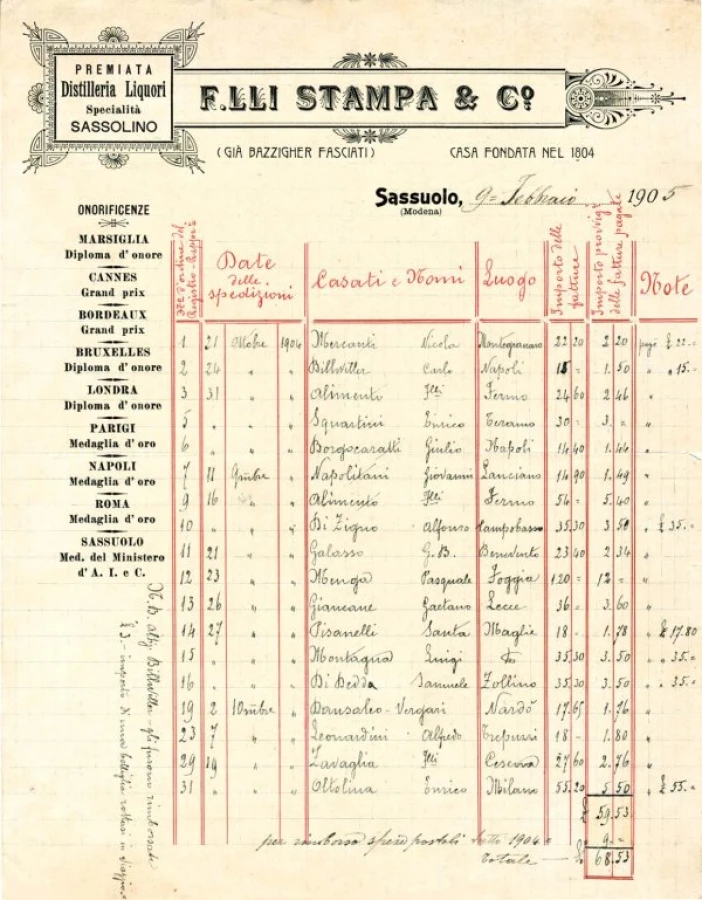 PREMIATA
Distilleria Liquori
Specialità
SASSOLINO
F.LLI STAMPA & Cº
(GIÀ BAZZIGHER FASCIATI) CASA FONDATA NEL 1804
Sassuolo, 9= Febbraio 1905
(Modena)
ONORIFICENZE
MARSIGLIA
Diploma d'onore
CANNES
Grand prix
BORDEAUX
Grand prix
BRUXELLES
Diploma d'onore
LONDRA
Diploma d'onore
PARIGI
Medaglia d'oro
NAPOLI
Medaglia d'oro
ROMA
Medaglia d'oro
SASSUOLO
Med. del Ministero
d'A. I. e C.
d'ordine del Registro Date delle spedizioni Casati e Nomi Luogo Importo delle fatture Importo provvig. delle fatture pagate Note
1 21 Ottobre 1904 Mercanti Nicola 22 20 2 20 £ 22 =
2 24 " " Billwiller Carlo Napoli 15 = 1. 50 " " 15. =
3 31 " " Alimento Flli Fermo 24 60 2 46 "
5 " " " Squartini Enrico Teramo 30 = 3. = "
6 " " " Giulio Napoli 14 40 1. 44 "
7 11 9mbre " Napolitani Giovanni Lanciano 14 90 1. 49 "
9 16 " " Alimento Flli Fermo 54 = 5. 40 "
10 " " " Di Zigno Alfonso Campobasso 35. 30 3 50 " £ 35. =
11 21 " " Galasso G. B. Benevento 23 40 2 34 "
12 23 " " Menga Pasquale Foggia 120 = 12 = "
13 26 " " Giancane Gaetano Lecce 36 = 3. 60 "
14 27 " " Pisanelli Santa Maglie 18 - 1. 78 " £ 17.80
15 " " " Montagna Luigi 35. 30 3. 50 " " 35. =
16 " " " Di Dedda Samuele Zollino 35. 30 3. 50 " " 35. =
19 2 10mbre " Dansalco - Vergari Nardò 17. 65 1. 76 "
23 7 " " Leonardini Alfredo Trepuzzi 18 - 1. 80 "
29 19 " " Zavaglia Flli Cesena 27 60 2. 76 "
31 " " " Ottolina Enrico Milano 55. 20 5. 50 " £ 55. =
£ 59. 53
per rimborso spese postali tutto 1904 = 9. =
Totale — £ 68. 53
N. B. Billwiller - gli furono rimborsate
£ 3. - importo di una bottiglia rottasi in viaggio